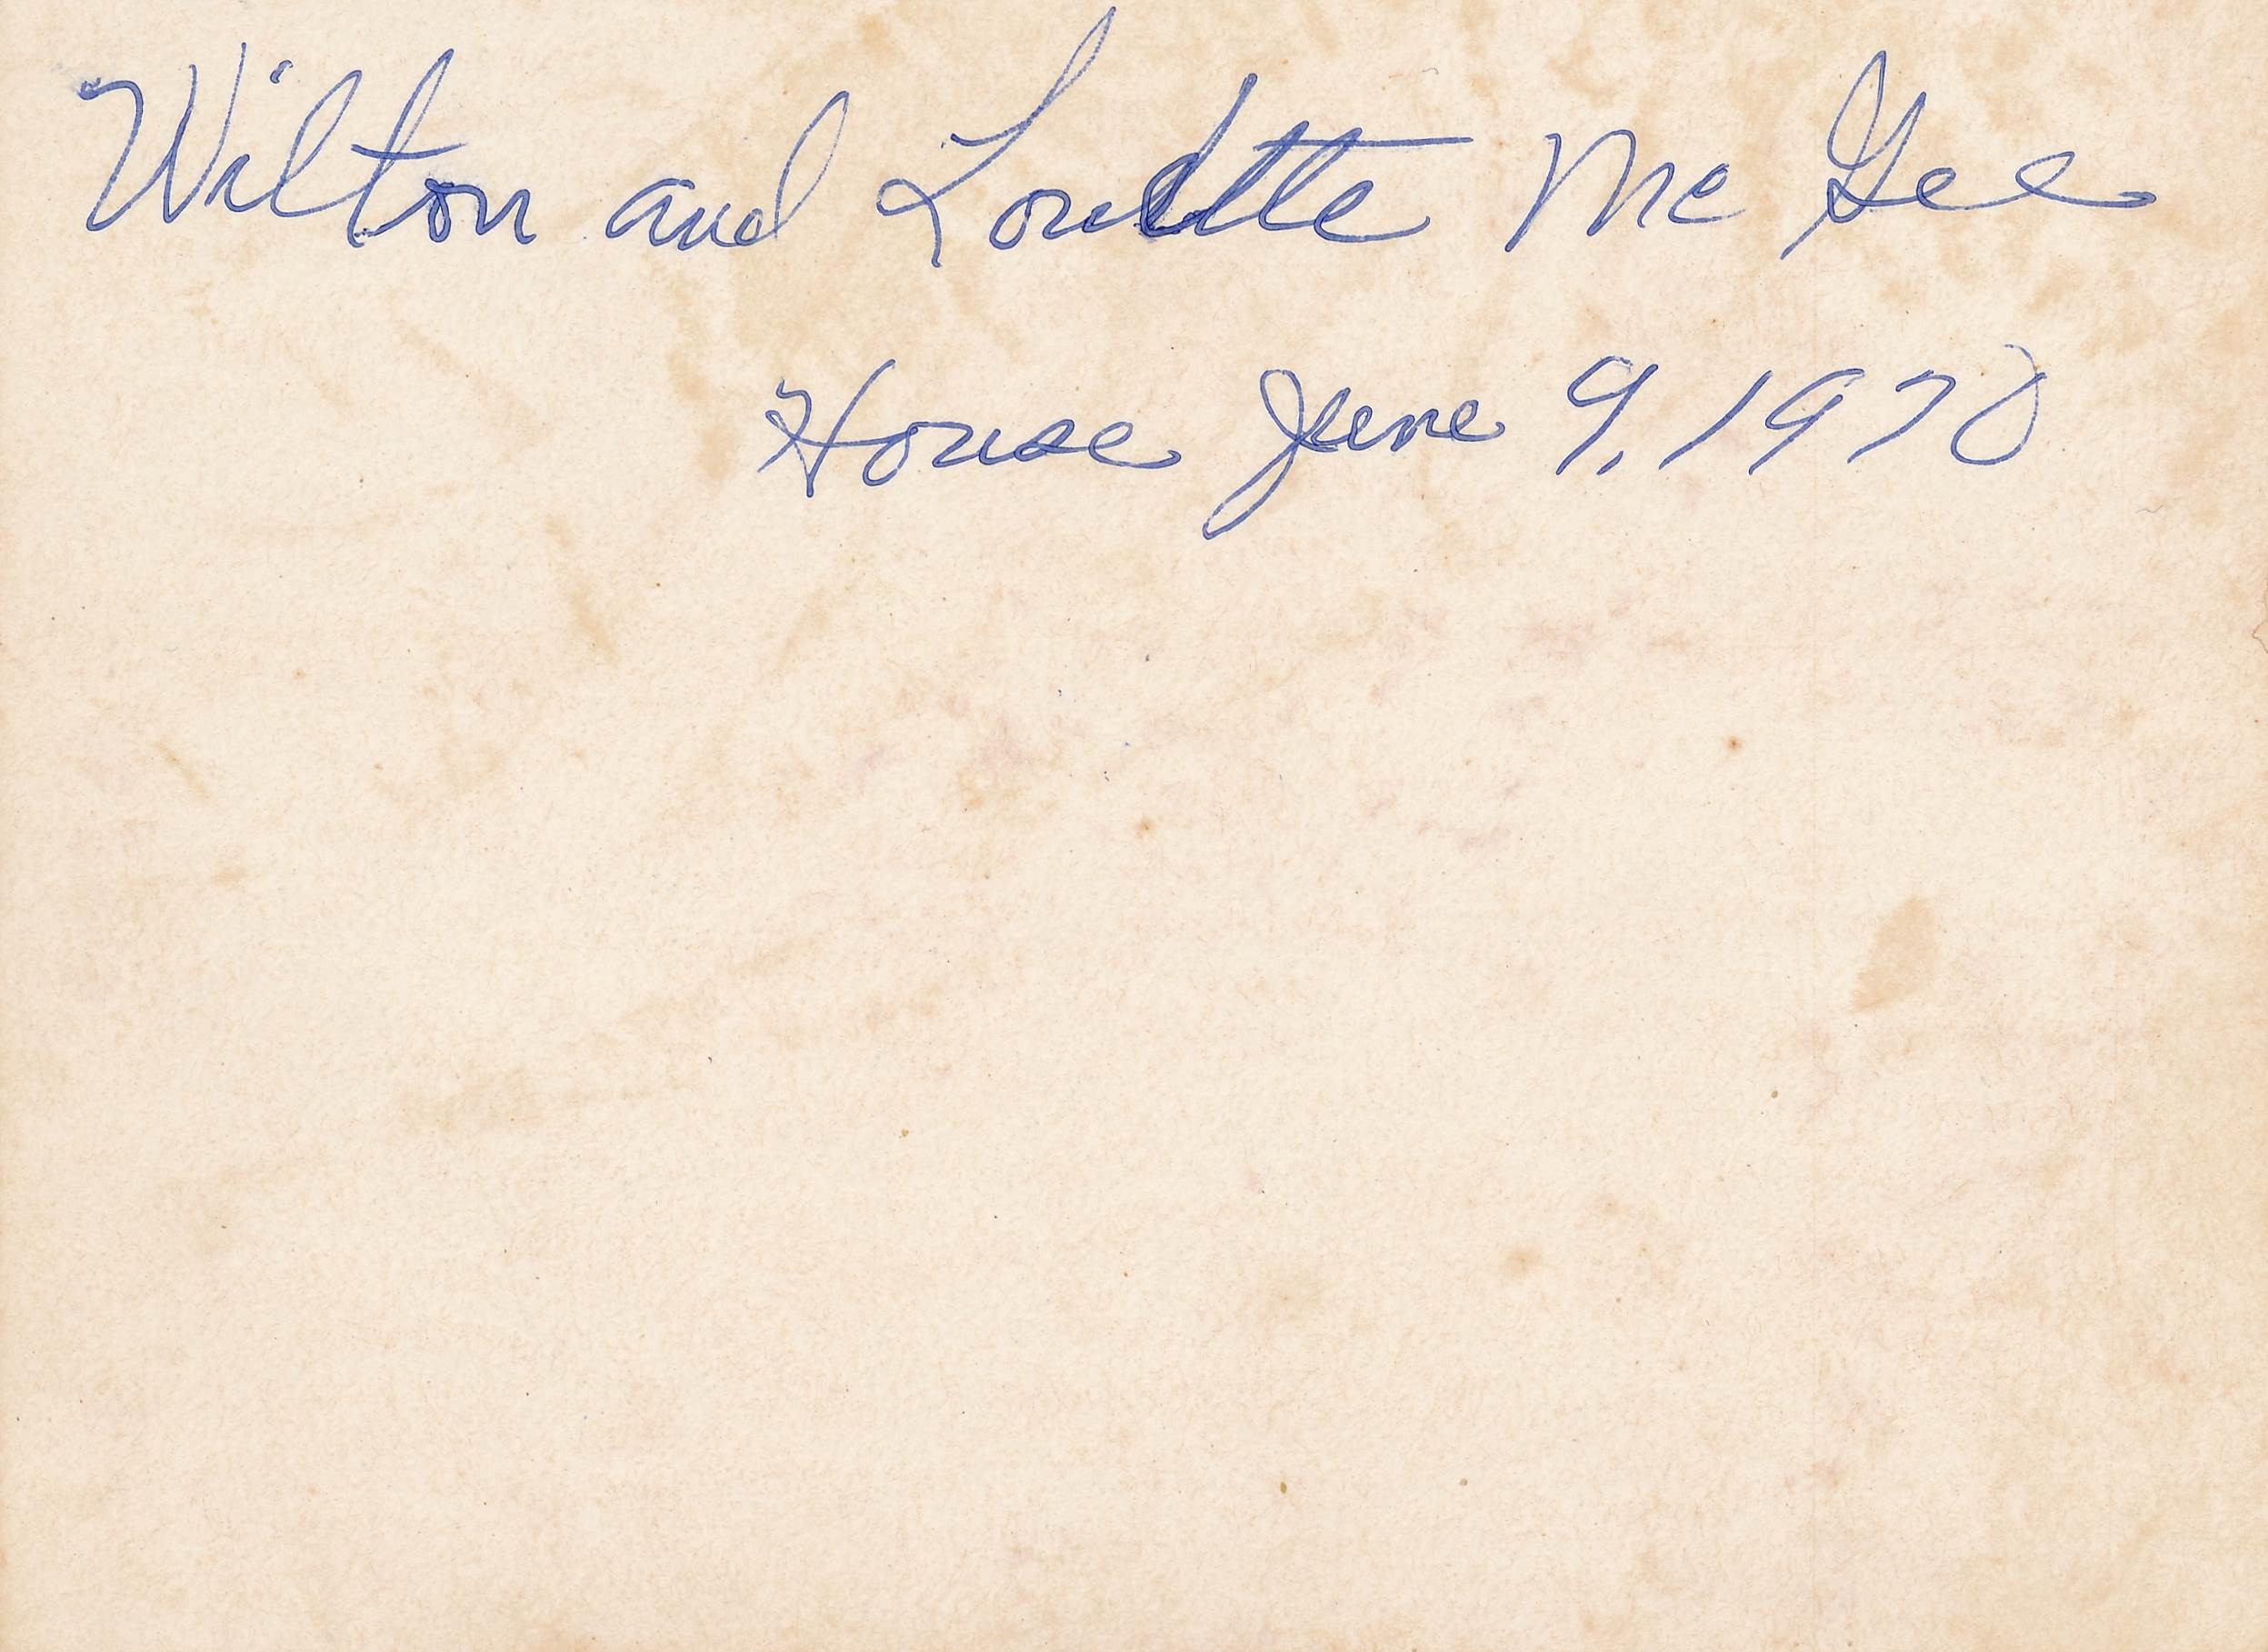 Wilton and Mc Gee
House June 9, 1970